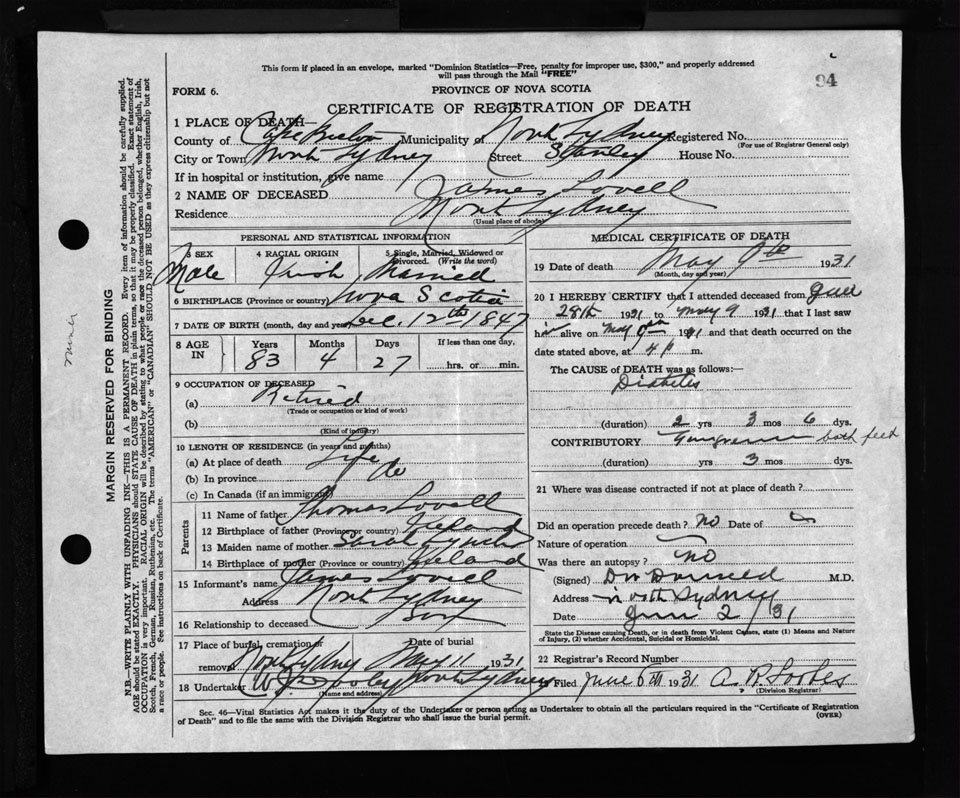 This form if placed in an envelope, marked "Dominion Statistics—Free, penalty for improper use, $300," and properly addressed
will pass through the Mail "FREE"
94
FORM 6.
PROVINCE OF NOVA SCOTIA
CERTIFICATE OF REGISTRATION OF DEATH
1 PLACE OF DEATH
County of Cape Breton Municipality of North Sydney Registered No.
(For use of Registrar General only)
City or Town North Sydney Street Stanley House No.
If in hospital or institution, give name
2 NAME OF DECEASED James Lovell
Residence North Sydney
(Usual place of abode)
PERSONAL AND STATISTICAL INFORMATION
3 SEX 4 RACIAL ORIGIN 5 Single, Married, Widowed or Divorced. (Write the word)
Male Irish Married
6 BIRTHPLACE (Province or country) Nova Scotia
7 DATE OF BIRTH (month, day and year) Dec. 12th 1847
8 AGE IN Years Months Days If less than one day,
83 4 27 hrs. or min.
9 OCCUPATION OF DECEASED
(a) Retired
(Trade or occupation or kind of work)
(b)
(Kind of industry)
10 LENGTH OF RESIDENCE (in years and months)
(a) At place of death Life
(b) In province do
(c) In Canada (if an immigrant)
Parents
11 Name of father Thomas Lovell
12 Birthplace of father (Province or country) Ireland
13 Maiden name of mother Sarah Lynch
14 Birthplace of mother (Province or country) Ireland
15 Informant's name James Lovell
Address North Sydney
16 Relationship to deceased Son
17 Place of burial, cremation or removal Date of burial
North Sydney May 11 1931
18 Undertaker Dooley North Sydney
(Name and address)
MEDICAL CERTIFICATE OF DEATH
19 Date of death May 9th 1931
(Month, day and year)
20 I HEREBY CERTIFY that I attended deceased from
28th 1931 to May 9 1931 that I last saw
h alive on May 1931 and that death occurred on
date stated above, at 4 P m.
The CAUSE OF DEATH was as follows:—
Diabetes
(duration) 2 yrs 3 mos 6 dys.
CONTRIBUTORY Gangrene both feet
(duration) yrs 3 mos dys.
21 Where was disease contracted if not at place of death?
Did an operation precede death? No Date of
Nature of operation
Was there an autopsy? No
(Signed) M.D.
Address North Sydney
Date June 2/31
State the Disease causing Death, or in death from Violent Causes, state (1) Means and Nature of Injury, (2) whether Accidental, Suicidal or Homicidal.
22 Registrar's Record Number
Filed June 6 1931
(Division Registrar)
Sec. 46—Vital Statistics Act makes it the duty of the Undertaker or person acting as Undertaker to obtain all the particulars required in the "Certificate of Registration
of Death" and to file the same with the Division Registrar who shall issue the burial permit.
(OVER)
MARGIN RESERVED FOR BINDING
N.B.—WRITE PLAINLY WITH UNFADING INK—THIS IS A PERMANENT RECORD. Every item of information should be carefully supplied.
AGE should be stated EXACTLY. PHYSICIANS should STATE CAUSE OF DEATH in plain terms, so that it may be properly classified. Exact statement of
OCCUPATION is very important. RACIAL ORIGIN will be described by stating to what people or race the deceased person belonged, whether English, Irish,
Scotch, French, German, Russian, Ruthenian, etc. The terms "AMERICAN" or "CANADIAN" SHOULD NOT BE USED as they express citizenship but not
a race or people. See instructions on back of Certificate.